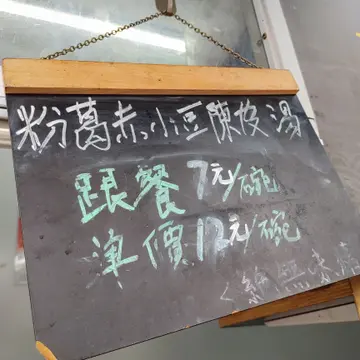 粉葛赤小豆陳皮湯
跟餐7元/碗
淨價12元/碗